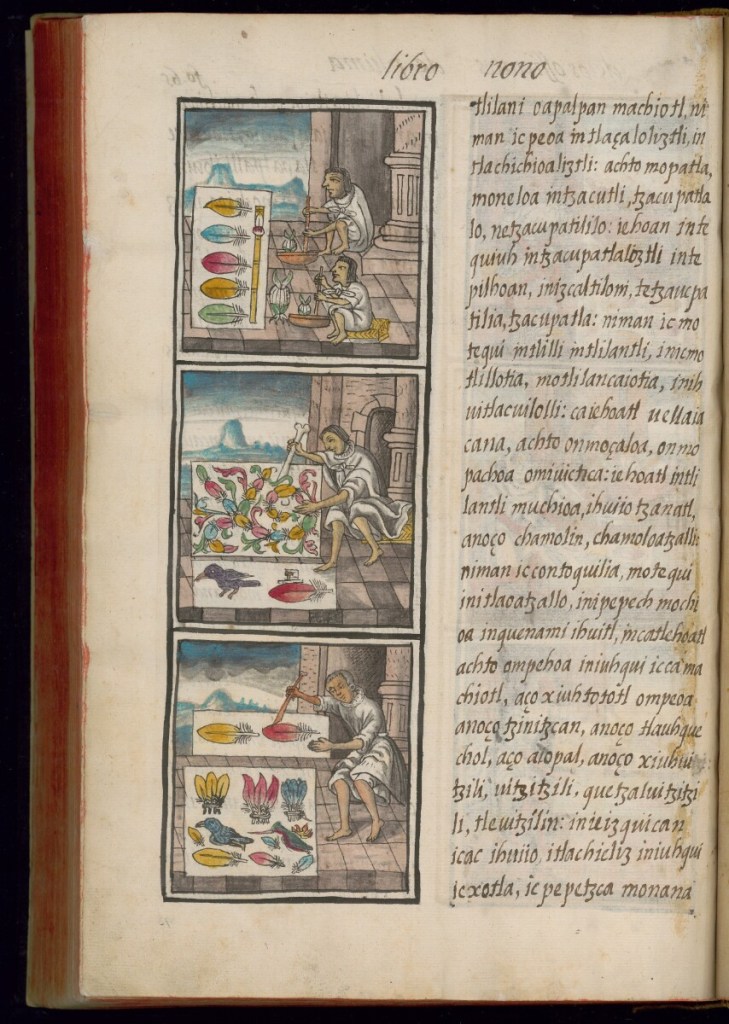 libro nono
tlilani oapalpan machiotl, ni
man ic peoa in tlaçaloliztli, in
tlachichioaliztli: achto mopatla,
moneloa in tzacutli, tzacupatla
lo, netzacupatililo: iehoan inte
quiuh in tzacupatlaliztli inte
pilhoan, in izcaltilom, tetzaucpa
tilia, tzacupatla: niman ic mo
tequi in tlilli in tlilantli, inicmo
tlillotia, motlilancaiotia, inih
uitlacuilolli: ca iehoatl vellaia
cana, achto onmoçaloa, onmo
pachoa omiuictica: iehoatl in tli
lantli muchioa, ihuiio tzanatl,
anoço chamolin, chamoloatzalli:
niman ic contoquilia, motequi
in itlaoatzallo, in ipepech mochi
oa in quenami ihuitl, in catlehoatl
achto ompehoa iniuhqui icca ma
chiotl, aço xiuhtototl ompeoa
anoço tzinitzcan, anoço tlauhque
chol, aço aiopal, anoço xiuhui
tzili, uitzitzili, quetzaluitzitzi
li, tleuitzilin: in ie izquican
icac ihuiio itlachieliz iniuhqui
ic xotla, ic pepetzca monana